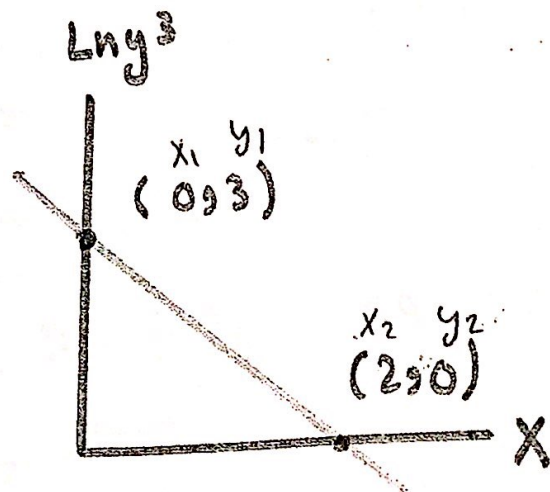 Lny³
x₁ y₁
(0,3)
x₂ y₂
(2,0)
X